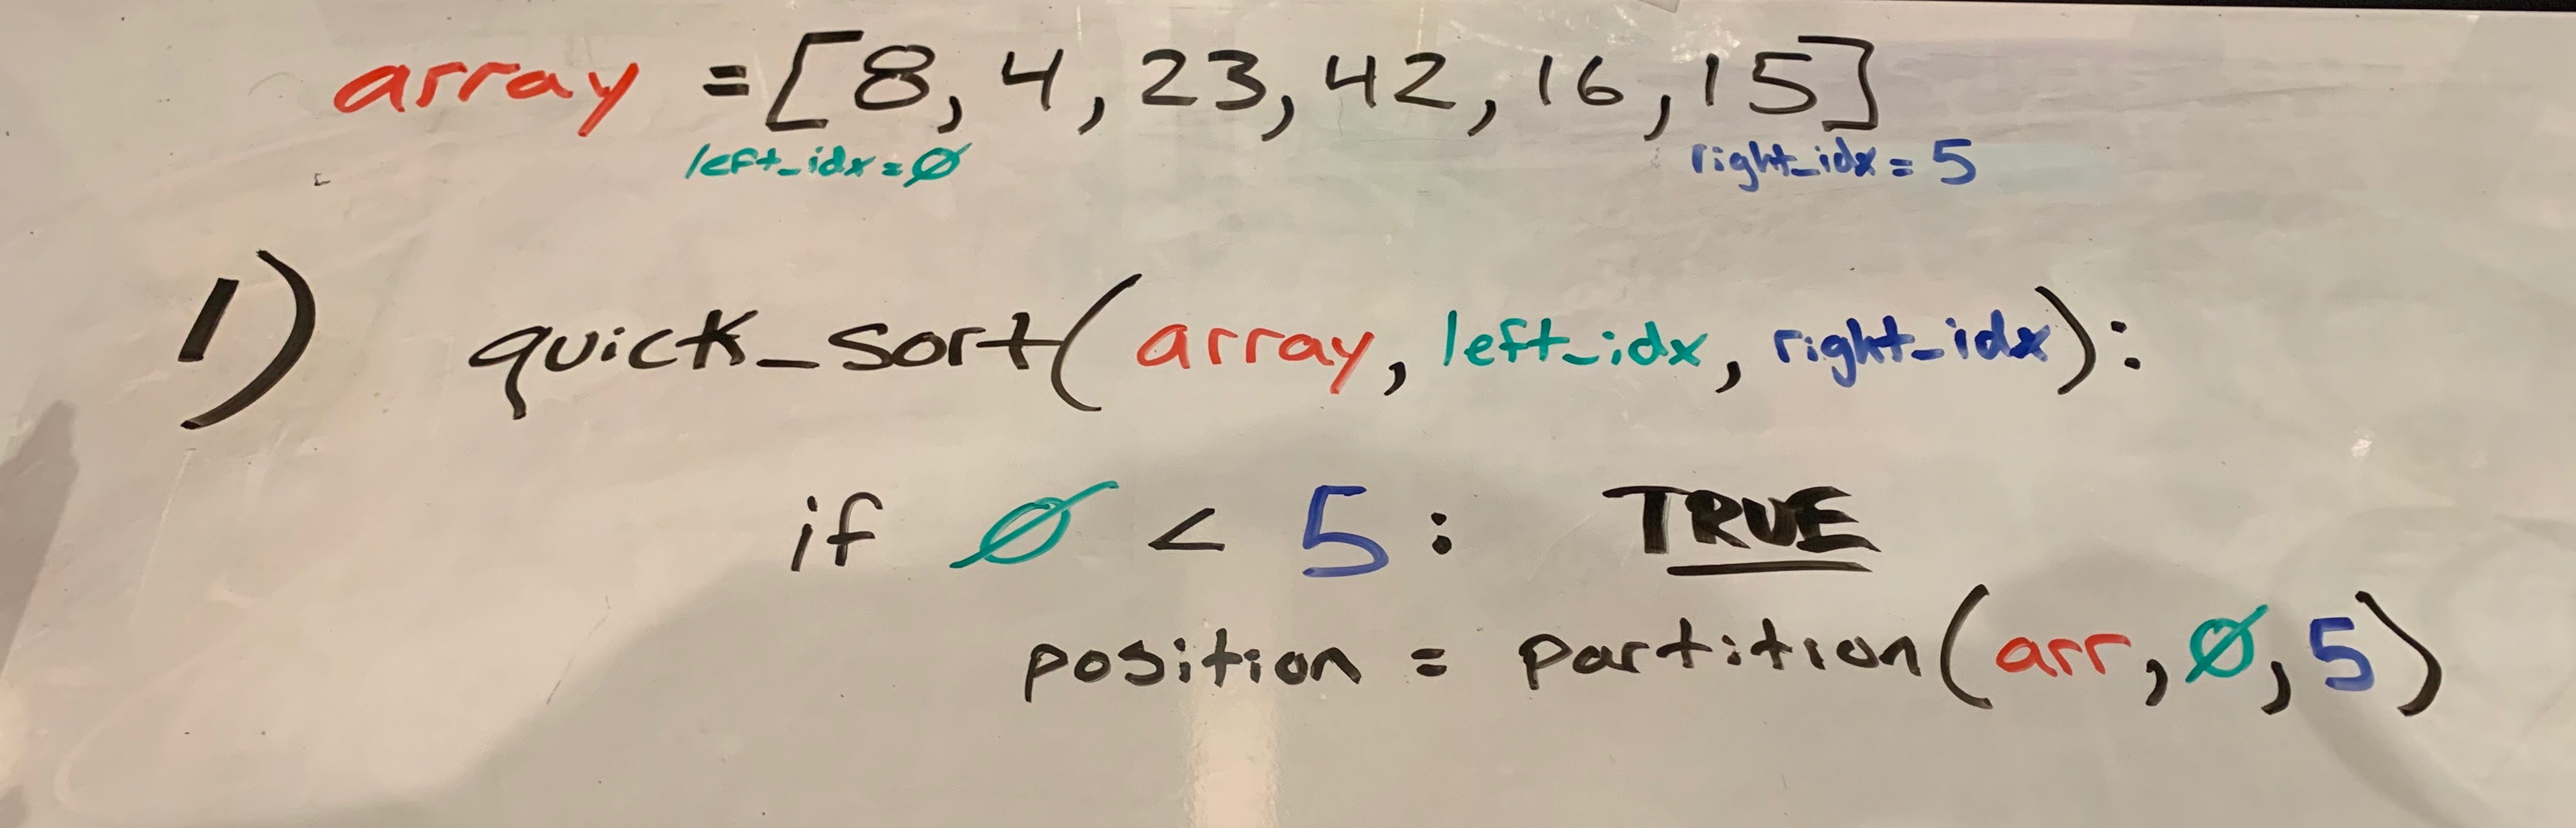 array = [8, 4, 23, 42, 16, 15]
left_idx = Ø right_idx = 5
1) quick_sort(array, left_idx, right_idx):
if Ø < 5: TRUE
position = partition(arr, Ø, 5)